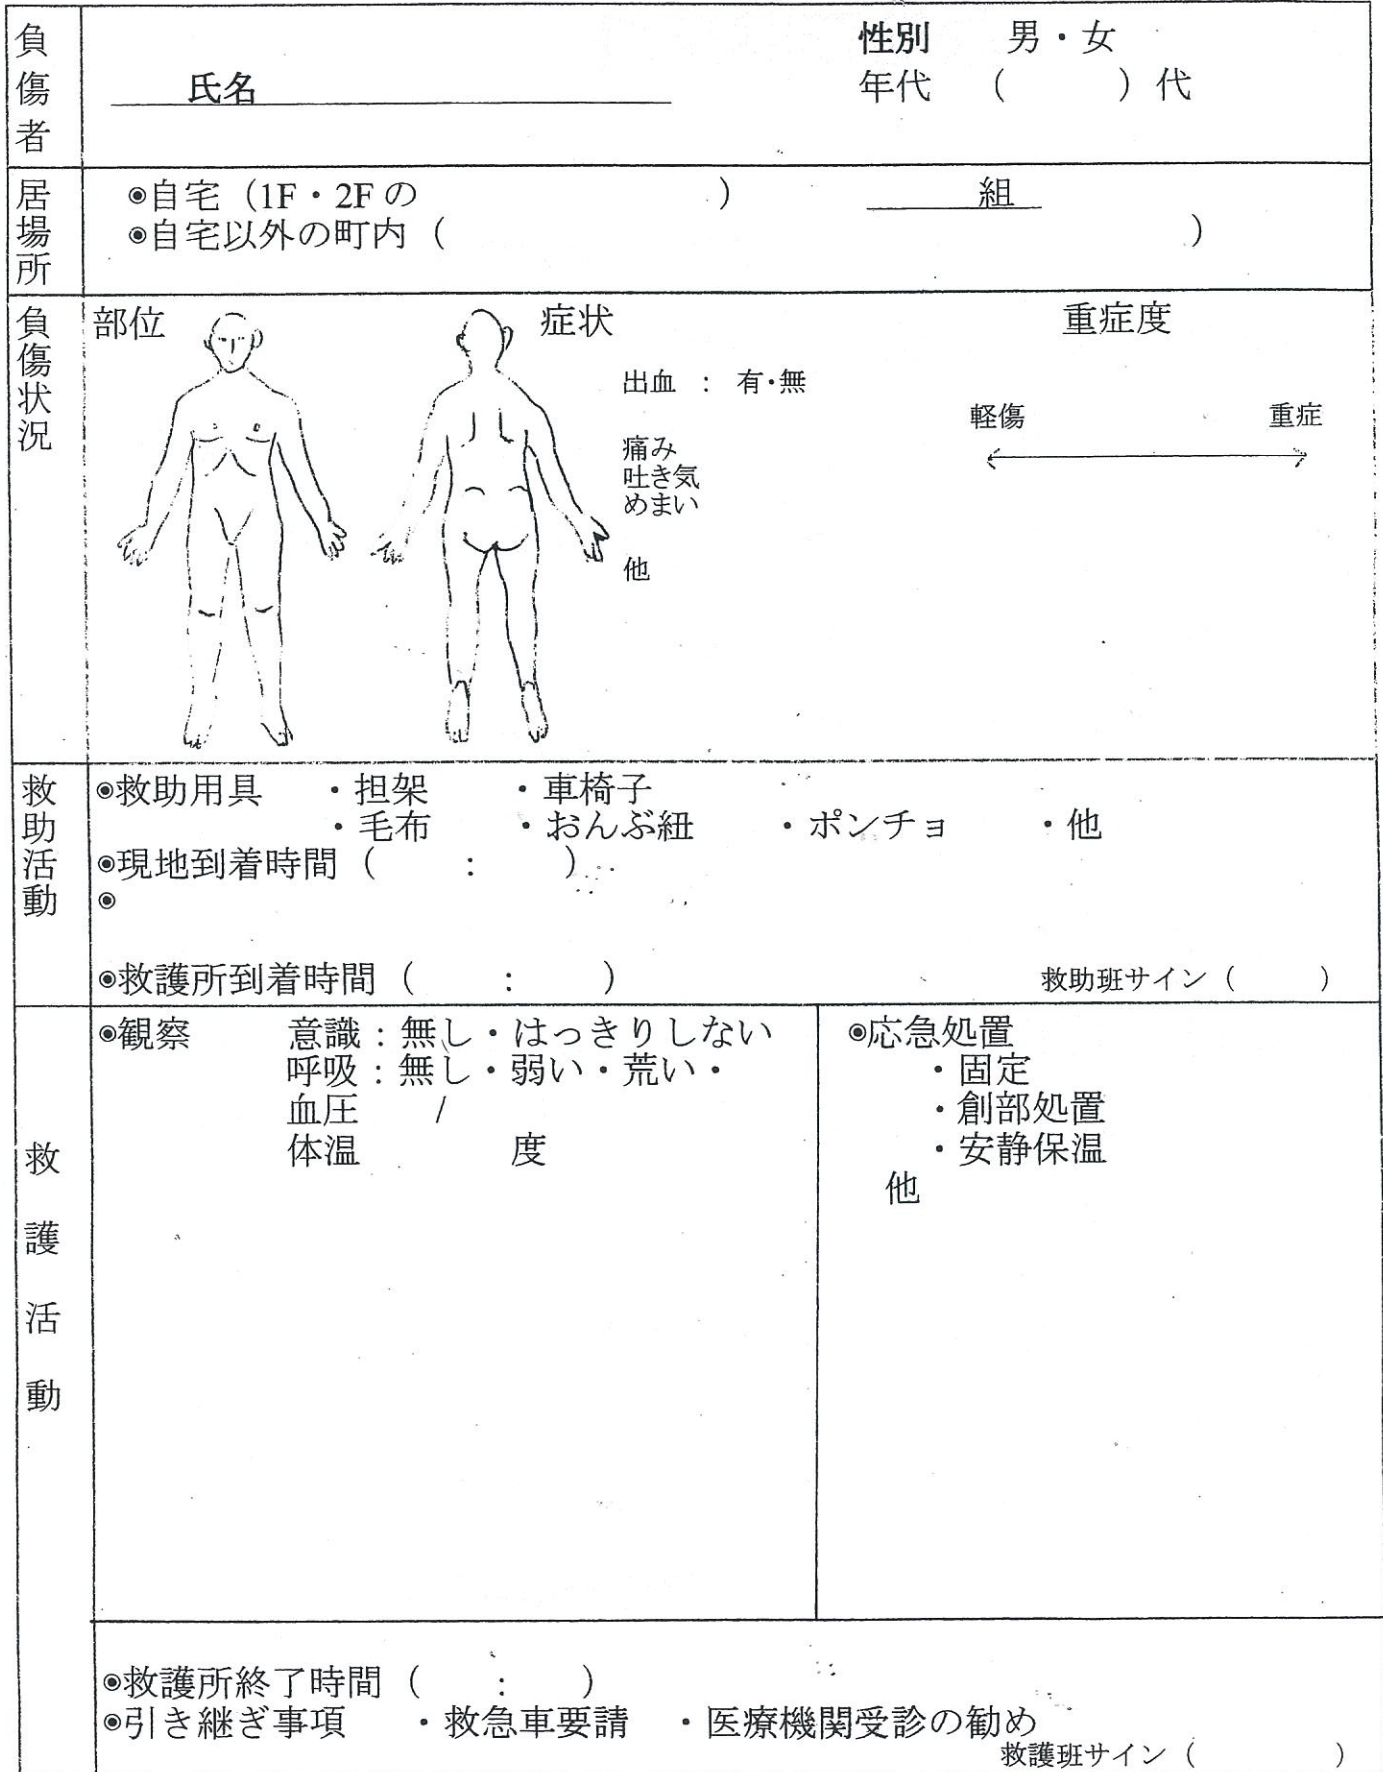 負傷者
氏名
性別 男・女
年代 （ ）代
居場所
◉自宅（1F・2Fの ） 組
◉自宅以外の町内（ ）
負傷状況
部位 症状 重症度
出血 ： 有・無
軽傷 重症
痛み
吐き気
めまい
他
救助活動
◉救助用具 ・担架 ・車椅子
・毛布 ・おんぶ紐 ・ポンチョ ・他
◉現地到着時間（ : ）
◉
◉救護所到着時間（ : ） 救助班サイン（ ）
救護活動
◉観察 意識：無し・はっきりしない
呼吸：無し・弱い・荒い・
血圧 /
体温 度
◉応急処置
・固定
・創部処置
・安静保温
他
◉救護所終了時間（ : ）
◉引き継ぎ事項 ・救急車要請 ・医療機関受診の勧め
救護班サイン（ ）